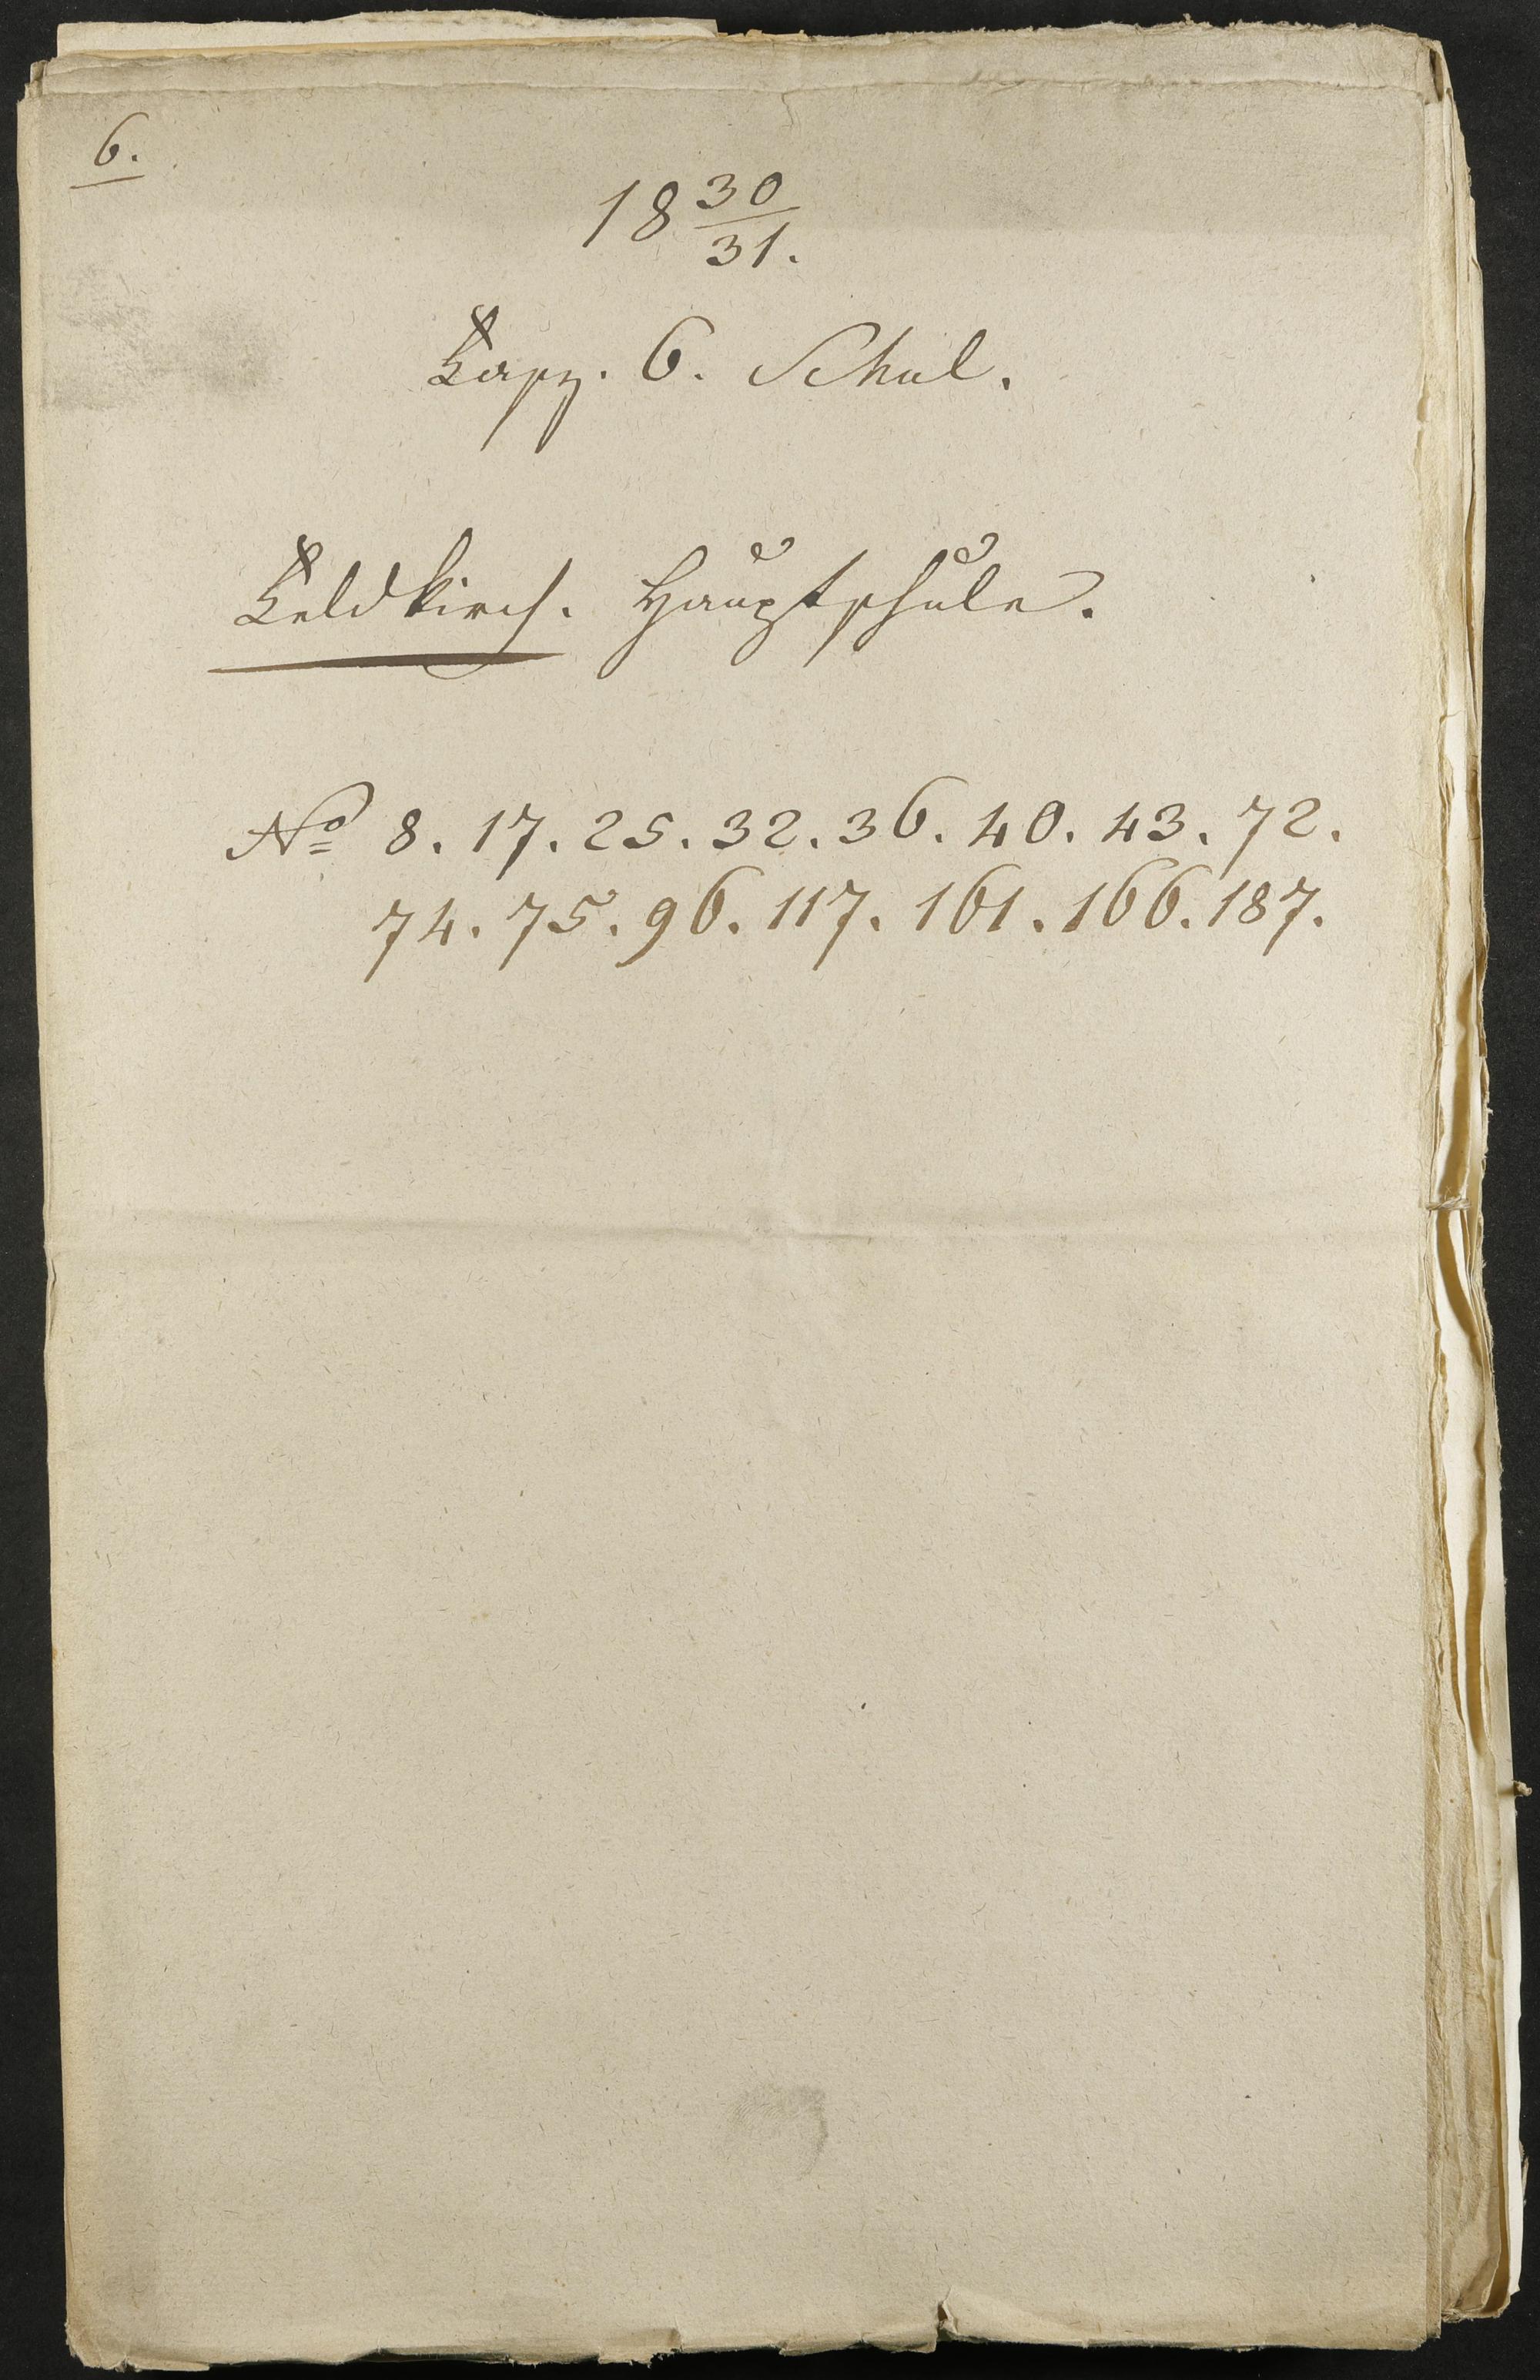 6.
18 30/31.
Fasz. 6. Schul.
Feldkirch. Hauptschule.
No 8. 17. 25. 32. 36. 40. 43. 72.
74. 75. 96. 117. 161. 166. 187.